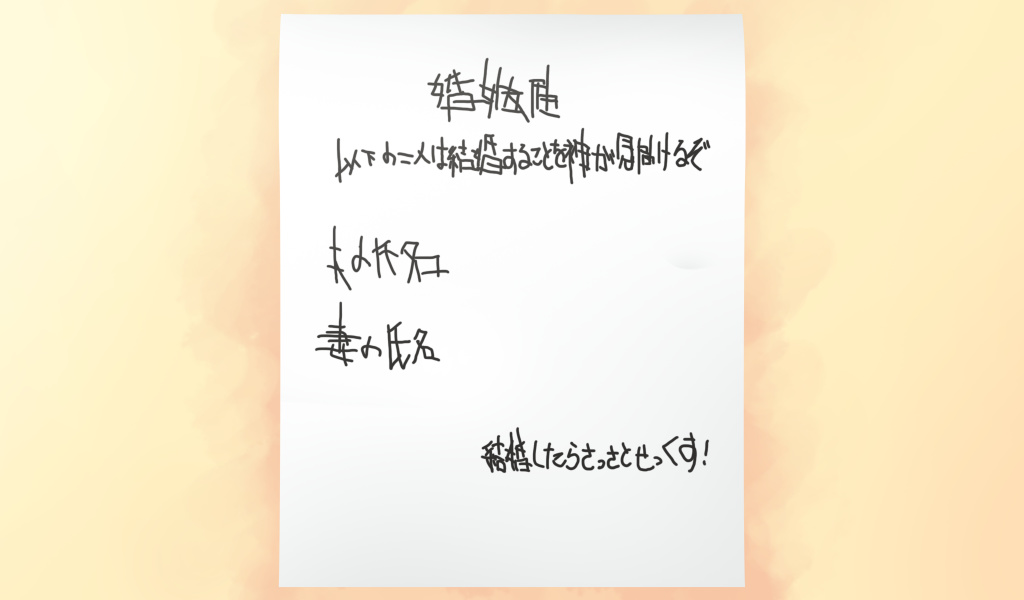 婚姻届
以下の二人は結婚することを神が見届けるぞ
夫の氏名
妻の氏名
結婚したらさっさとせっくす!